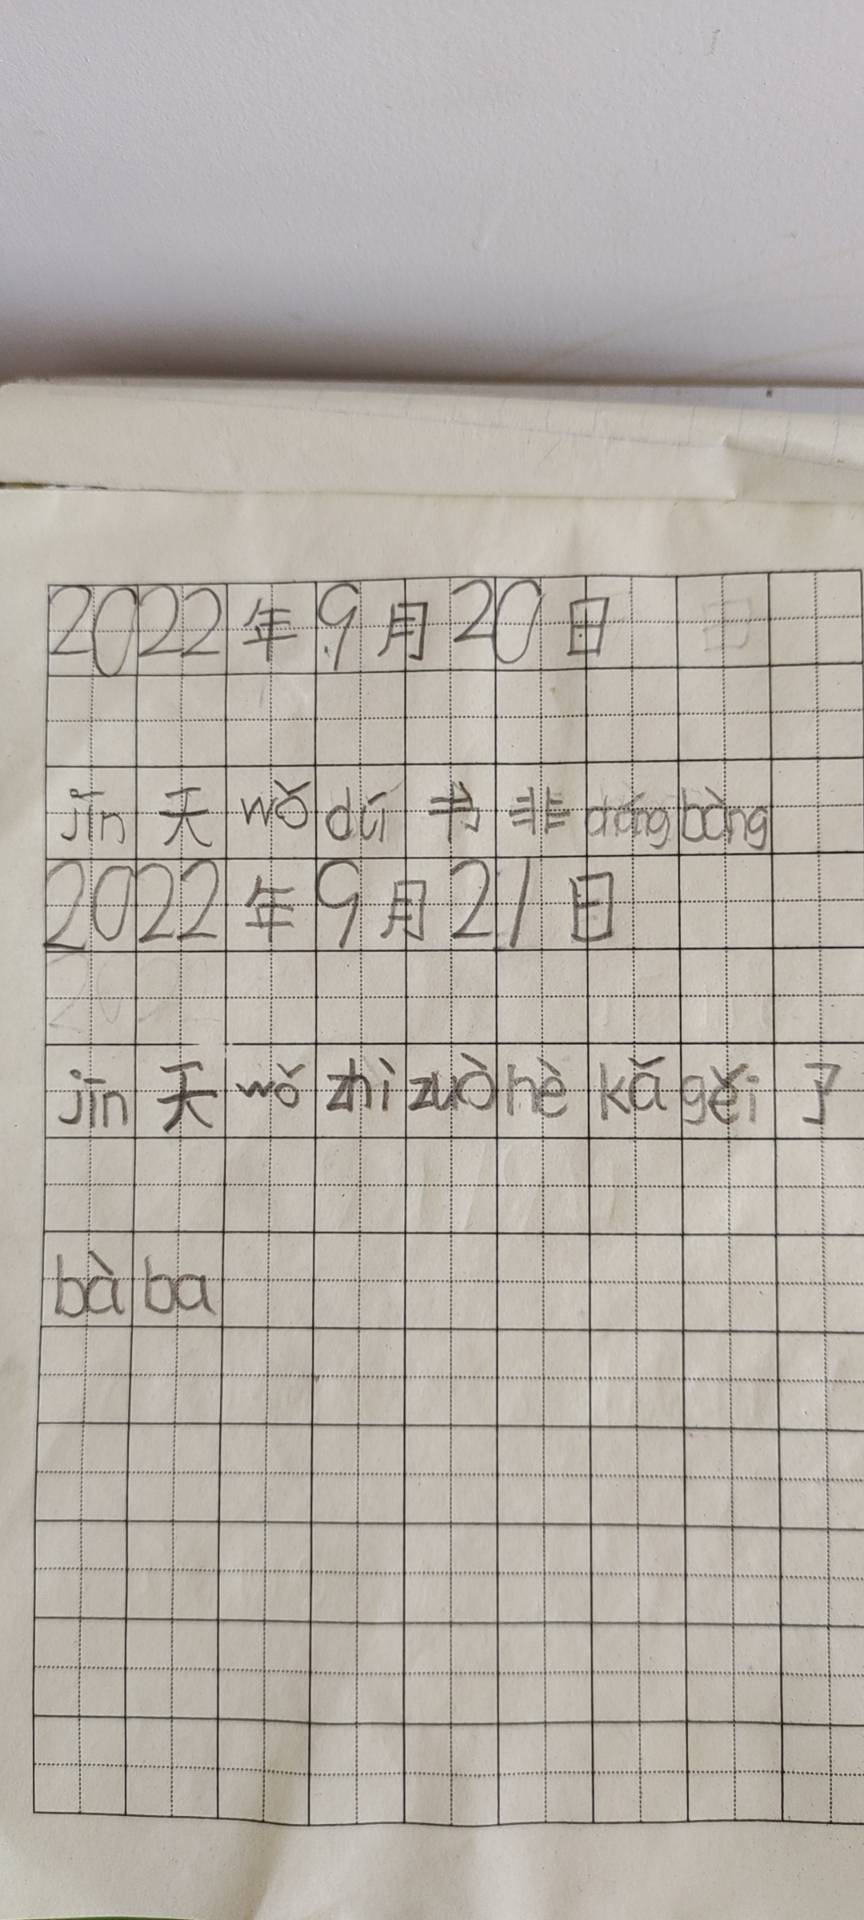 2022年9月20日
jīn天wǒdú书非cháng bàng
2022年9月21日
jīn天wǒ zhì zuò hè kǎ gěi了
bà ba